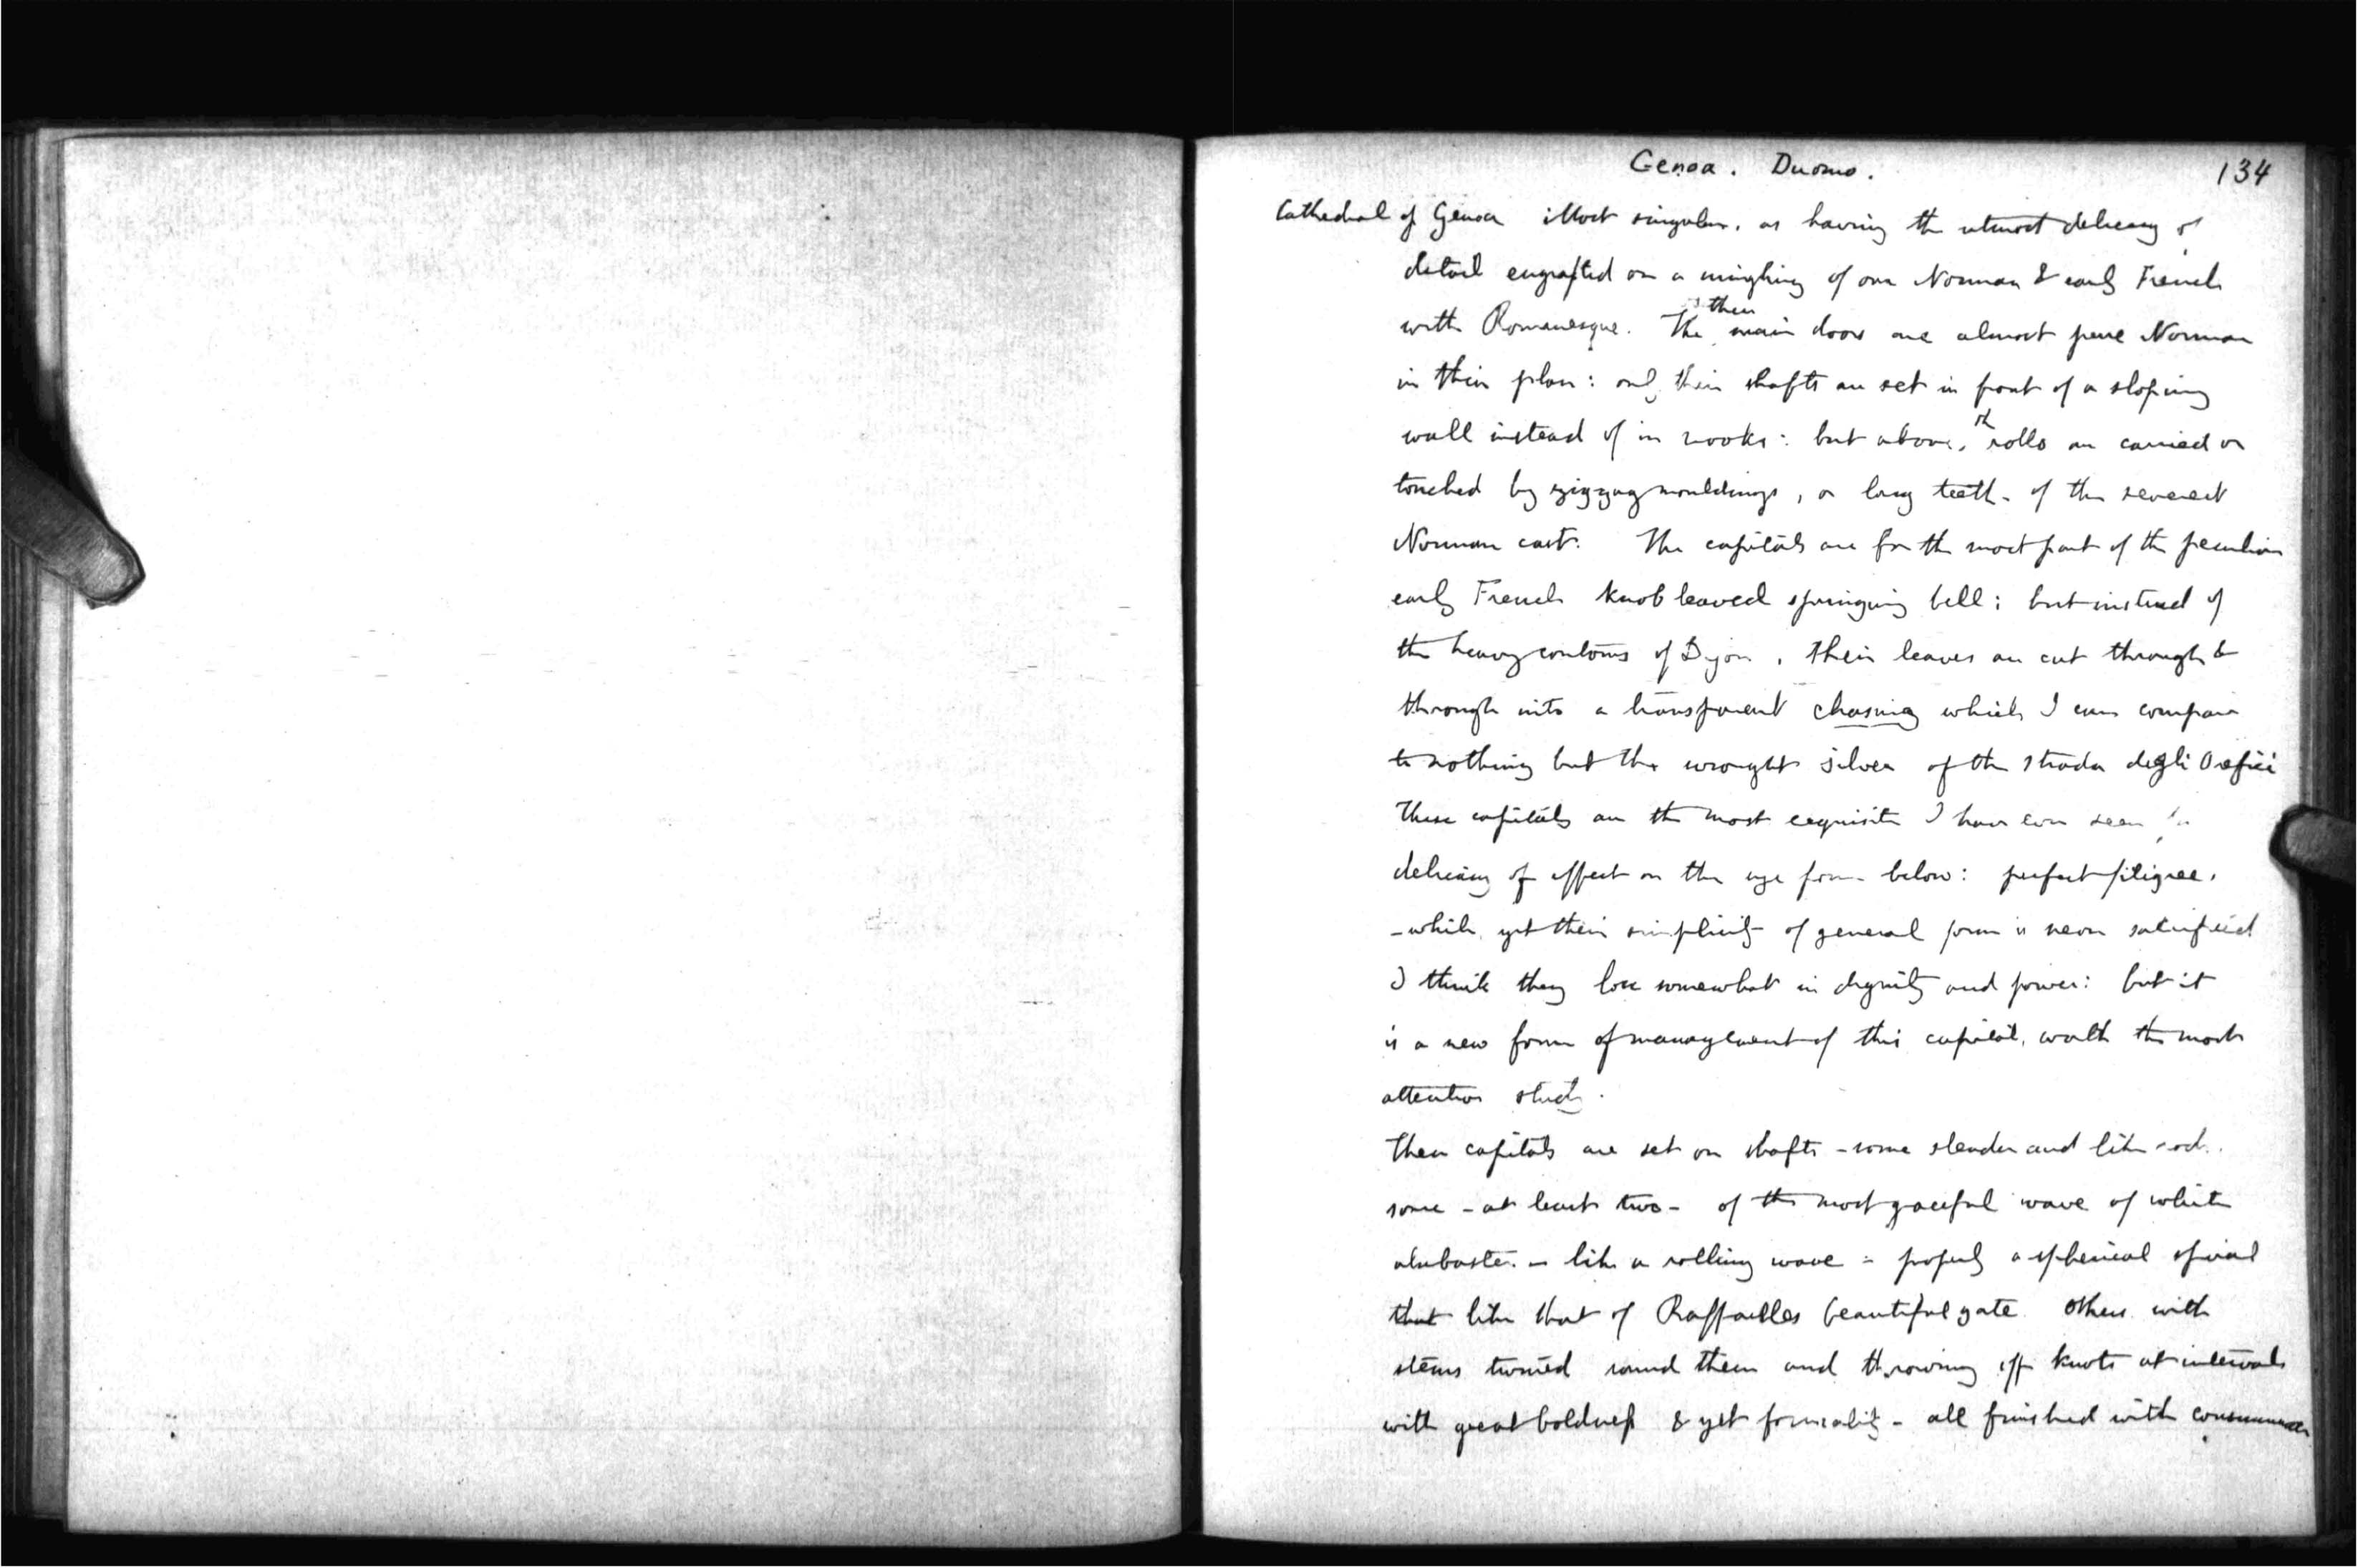 Genoa. Duomo.
134
Cathedral of Genoa Most singular, as having the utmost delicacy of
detail engrafted on a mingling of our Norman & early French
with Romanesque. The three main doors are almost pure Norman
in their plan: only their shafts are set in front of a sloping
wall instead of in nooks: but above, the rolls are carried or
touched by zigzag mouldings, or long teeth - of the severest
Norman cast. The capitals are for the most part of the peculiar
early French knob leaved springing bell; but instead of
the heavy contours of Dijon, their leaves are cut through &
through into a transparent chasing which I can compare
to nothing but the wrought silver of the strada degli Orefici
These capitals are the most exquisite I have ever seen for
delicacy of effect on the eye from below: perfect filigree,
- while yet their simplicity of general form is never sacrificed
I think they lose somewhat in dignity and power: but it
is a new form of management of this capital, worth the most
attentive study.
These capitals are set on shafts - some slender and like rods.
some - at least two - of the most graceful wave of white
alabaster - like a rolling wave - properly a spherical spiral
that like that of Raffaelles beautiful gate. Others with
stems turned round them and throwing off knots at intervals
with great boldness & yet formality - all finished with consummate